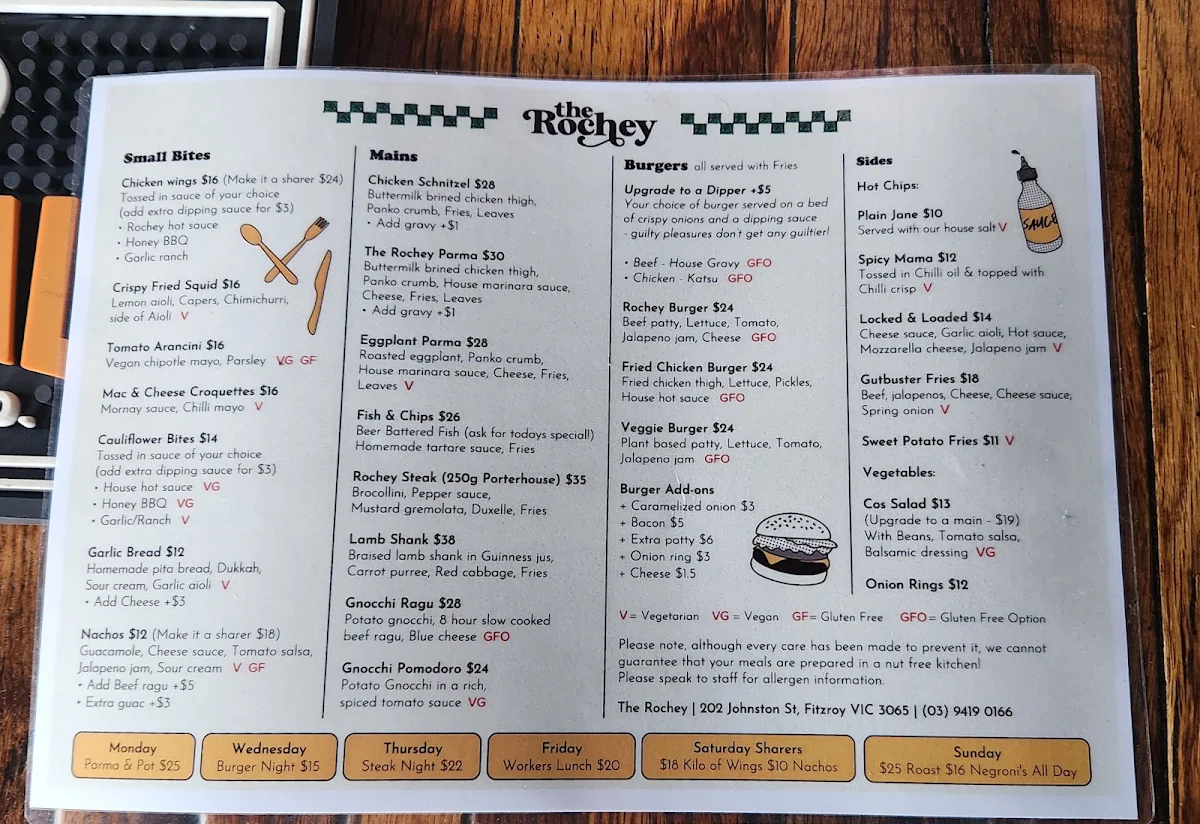 the
Rochey
Small Bites
Chicken wings $16 (Make it a sharer $24)
Tossed in sauce of your choice
(add extra dipping sauce for $3)
• Rochey hot sauce
• Honey BBQ
• Garlic ranch
Crispy Fried Squid $16
Lemon aioli, Capers, Chimichurri,
side of Aioli V
Tomato Arancini $16
Vegan chipotle mayo, Parsley VG GF
Mac & Cheese Croquettes $16
Mornay sauce, Chilli mayo V
Cauliflower Bites $14
Tossed in sauce of your choice
(add extra dipping sauce for $3)
• House hot sauce VG
• Honey BBQ VG
• Garlic/Ranch V
Garlic Bread $12
Homemade pita bread, Dukkah,
Sour cream, Garlic aioli V
• Add Cheese +$3
Nachos $12 (Make it a sharer $18)
Guacamole, Cheese sauce, Tomato salsa,
Jalapeno jam, Sour cream V GF
• Add Beef ragu +$5
• Extra guac +$3
Mains
Chicken Schnitzel $28
Buttermilk brined chicken thigh,
Panko crumb, Fries, Leaves
• Add gravy +$1
The Rochey Parma $30
Buttermilk brined chicken thigh,
Panko crumb, House marinara sauce,
Cheese, Fries, Leaves
• Add gravy +$1
Eggplant Parma $28
Roasted eggplant, Panko crumb,
House marinara sauce, Cheese, Fries,
Leaves V
Fish & Chips $26
Beer Battered Fish (ask for todays special!)
Homemade tartare sauce, Fries
Rochey Steak (250g Porterhouse) $35
Brocollini, Pepper sauce,
Mustard gremolata, Duxelle, Fries
Lamb Shank $38
Braised lamb shank in Guinness jus,
Carrot purree, Red cabbage, Fries
Gnocchi Ragu $28
Potato gnocchi, 8 hour slow cooked
beef ragu, Blue cheese GFO
Gnocchi Pomodoro $24
Potato Gnocchi in a rich,
spiced tomato sauce VG
Burgers all served with Fries
Upgrade to a Dipper +$5
Your choice of burger served on a bed
of crispy onions and a dipping sauce
- guilty pleasures don't get any guiltier!
• Beef - House Gravy GFO
• Chicken - Katsu GFO
Rochey Burger $24
Beef patty, Lettuce, Tomato,
Jalapeno jam, Cheese GFO
Fried Chicken Burger $24
Fried chicken thigh, Lettuce, Pickles,
House hot sauce GFO
Veggie Burger $24
Plant based patty, Lettuce, Tomato,
Jalapeno jam GFO
Burger Add-ons
+ Caramelized onion $3
+ Bacon $5
+ Extra patty $6
+ Onion ring $3
+ Cheese $1.5
Sides
Hot Chips:
SAUCE
Plain Jane $10
Served with our house salt V
Spicy Mama $12
Tossed in Chilli oil & topped with
Chilli crisp V
Locked & Loaded $14
Cheese sauce, Garlic aioli, Hot sauce,
Mozzarella cheese, Jalapeno jam V
Gutbuster Fries $18
Beef, jalapenos, Cheese, Cheese sauce,
Spring onion V
Sweet Potato Fries $11 V
Vegetables:
Cos Salad $13
(Upgrade to a main - $19)
With Beans, Tomato salsa,
Balsamic dressing VG
Onion Rings $12
V = Vegetarian VG = Vegan GF = Gluten Free GFO = Gluten Free Option
Please note, although every care has been made to prevent it, we cannot
guarantee that your meals are prepared in a nut free kitchen!
Please speak to staff for allergen information.
The Rochey | 202 Johnston St, Fitzroy VIC 3065 | (03) 9419 0166
Monday
Parma & Pot $25
Wednesday
Burger Night $15
Thursday
Steak Night $22
Friday
Workers Lunch $20
Saturday Sharers
$18 Kilo of Wings $10 Nachos
Sunday
$25 Roast $16 Negroni's All Day